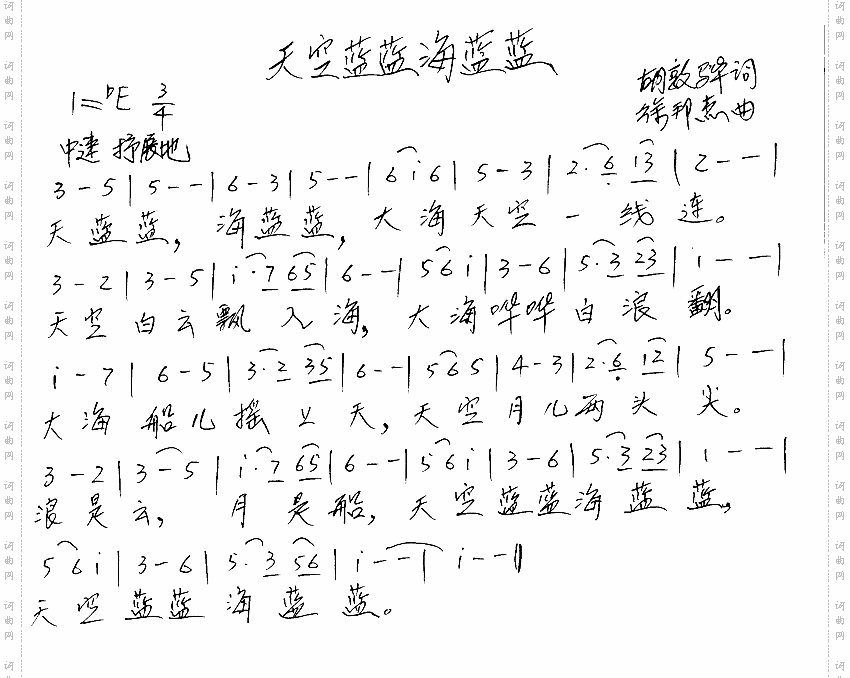 天空蓝蓝海蓝蓝
胡敦骅词
1=♭E 3/4
徐邦杰曲
中速 抒展地
3 - 5 | 5 - - | 6 - 3 | 5 - - | 6 i 6 | 5 - 3 | 2· 6 i3 | 2 - - |
天蓝蓝，海蓝蓝，大海天空一线连。
3 - 2 | 3 - 5 | i· 7 65 | 6 - - | 5 6 i | 3 - 6 | 5· 3 23 | i - - |
天空白云飘入海，大海哗哗白浪翻。
i - 7 | 6 - 5 | 3· 2 35 | 6 - - | 5 6 5 | 4 - 3 | 2· 6 i2 | 5 - - |
大海船儿摇上天，天空月儿两头尖。
3 - 2 | 3 - 5 | i· 7 65 | 6 - - | 5 6 i | 3 - 6 | 5· 3 23 | 1 - - |
浪是云，月是船，天空蓝蓝海蓝蓝，
5 6 i | 3 - 6 | 5· 3 56 | i - - | i - - ‖
天空蓝蓝海蓝蓝。
词曲网